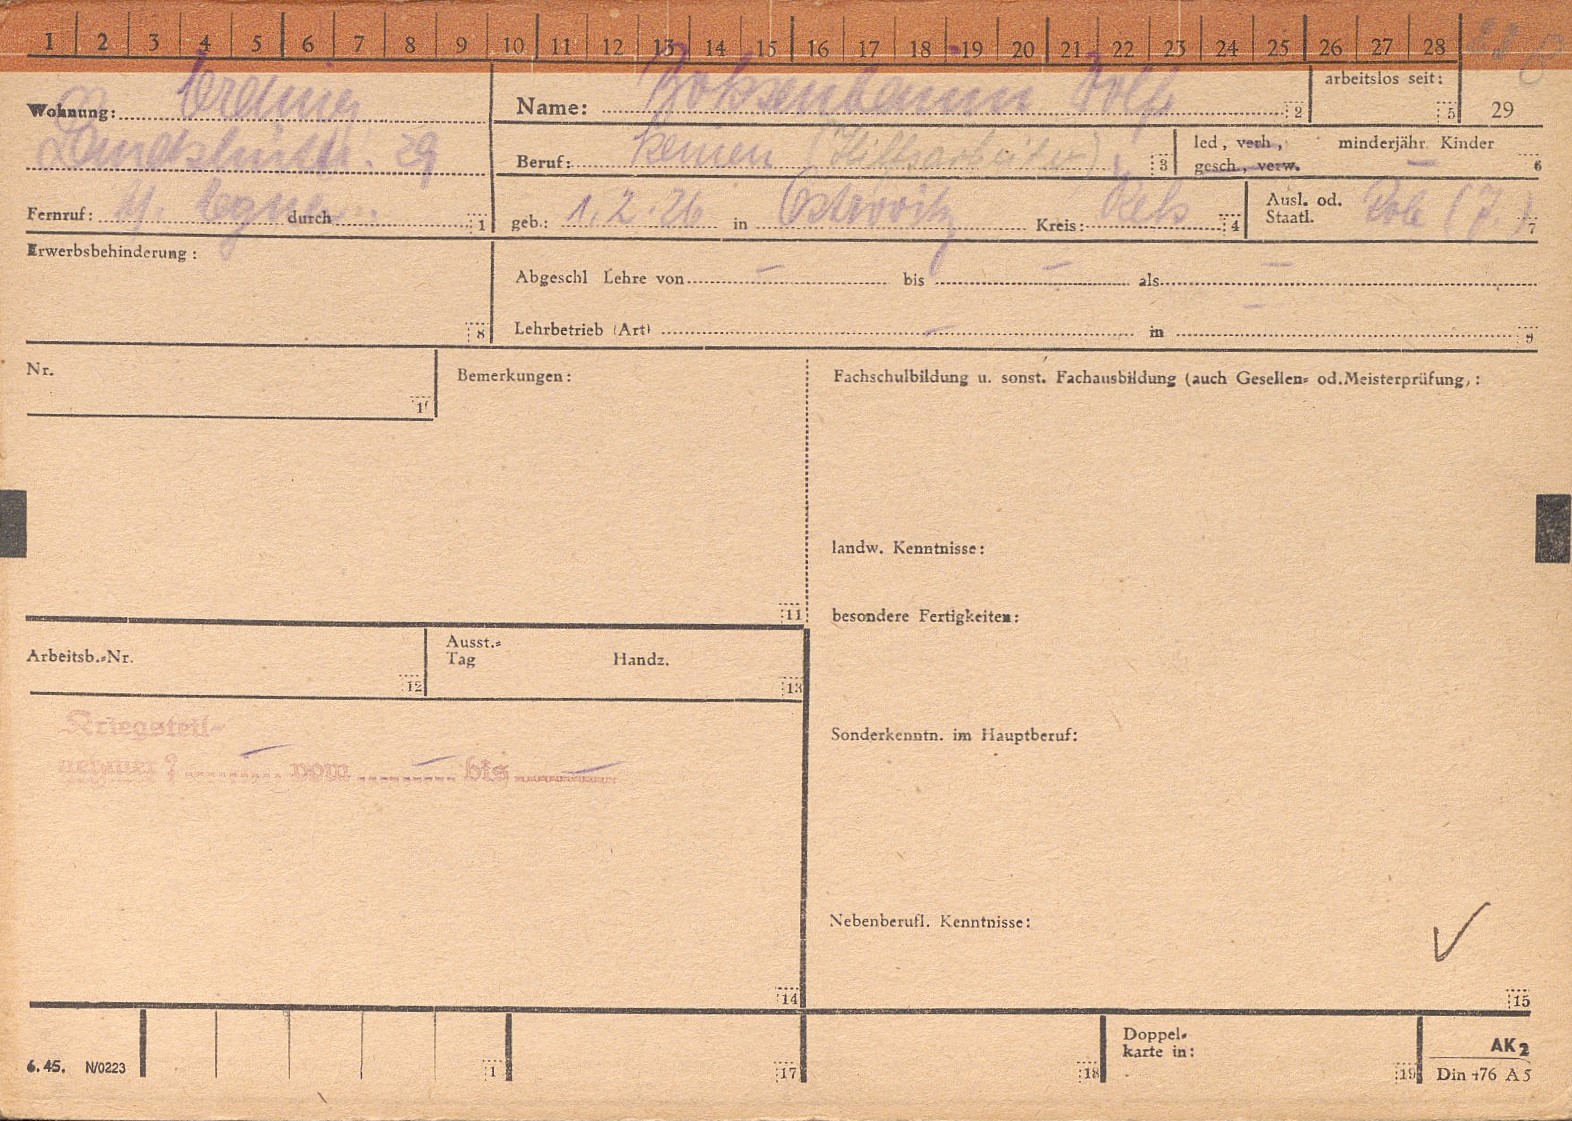 1 2 3 4 5 6 7 8 9 10 11 12 13 14 15 16 17 18 19 20 21 22 23 24 25 26 27 28
Wohnung: Erding
Landshuterstr. 29
Fernruf: durch 1
Name: Boksenbaum Rolf 2
arbeitslos seit: 5
29
Beruf: keinen (Hilfsarbeiter) 3
led., verh.,
gesch., verw.
minderjähr. Kinder – 6
geb.: 1.2.26 in Ostrovitz Kreis: 4
Ausl. od.
Staatl. Pole (J.) 7
Erwerbsbehinderung: 8
Abgeschl Lehre von – bis – als –
Lehrbetrieb (Art) – in – 9
Nr. 1
Bemerkungen: 11
Fachschulbildung u. sonst. Fachausbildung (auch Gesellen- od. Meisterprüfung,:
landw. Kenntnisse:
besondere Fertigkeiten:
Arbeitsb.-Nr. 12
Ausst.-
Tag Handz. 13
Kriegsteil-
nehmer? – vom – bis –
14
Sonderkenntn. im Hauptberuf:
Nebenberufl. Kenntnisse:
15
6. 45. N/0223
1 17 18
Doppel-
karte in: 19
AK 2
Din 476 A 5